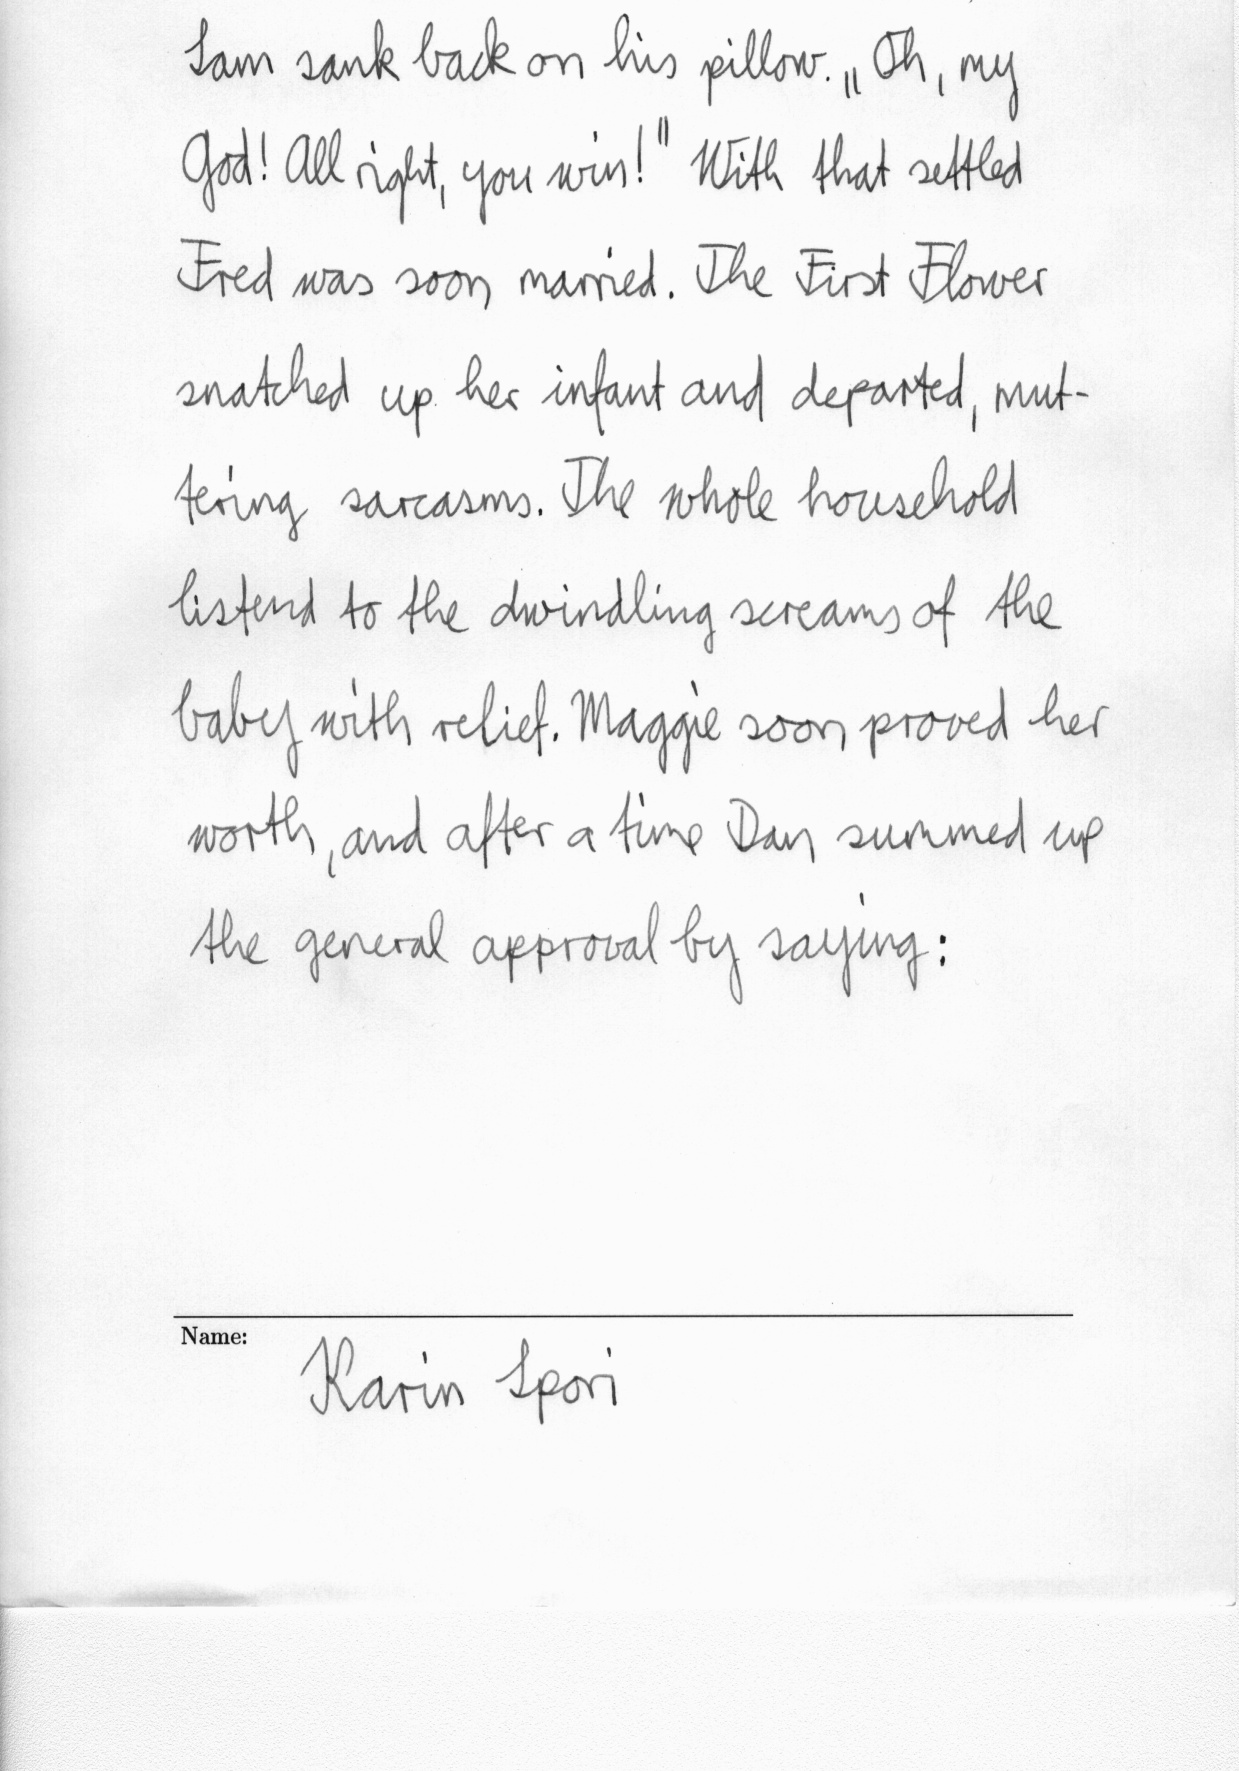 Sam sank back on his pillow. „Oh, my
God! All right, you win!" With that settled
Fred was soon married. The First Flower
snatched up her infant and departed, mut-
tering sarcasms. The whole household
listend to the dwindling screams of the
baby with relief. Maggie soon proved her
worth, and after a time Dan summed up
the general approval by saying:
Name:
Karin Spori